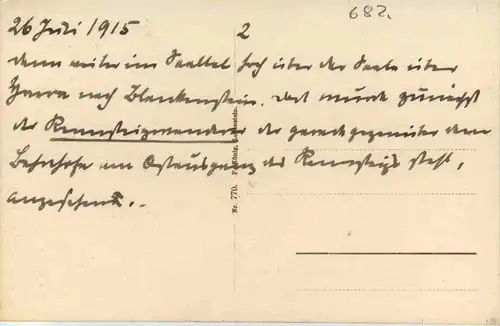 682.
26 Juli 1915 2
dann weiter im Saaltal hoch über der Saale über
nach Blankenstein. Dort wurde zunächst
der Rennsteigwanderer der gerade gegenüber dem
Bahnhofe am Ostausgang des Rennsteigs steht,
angesehen..
Nr. 770.